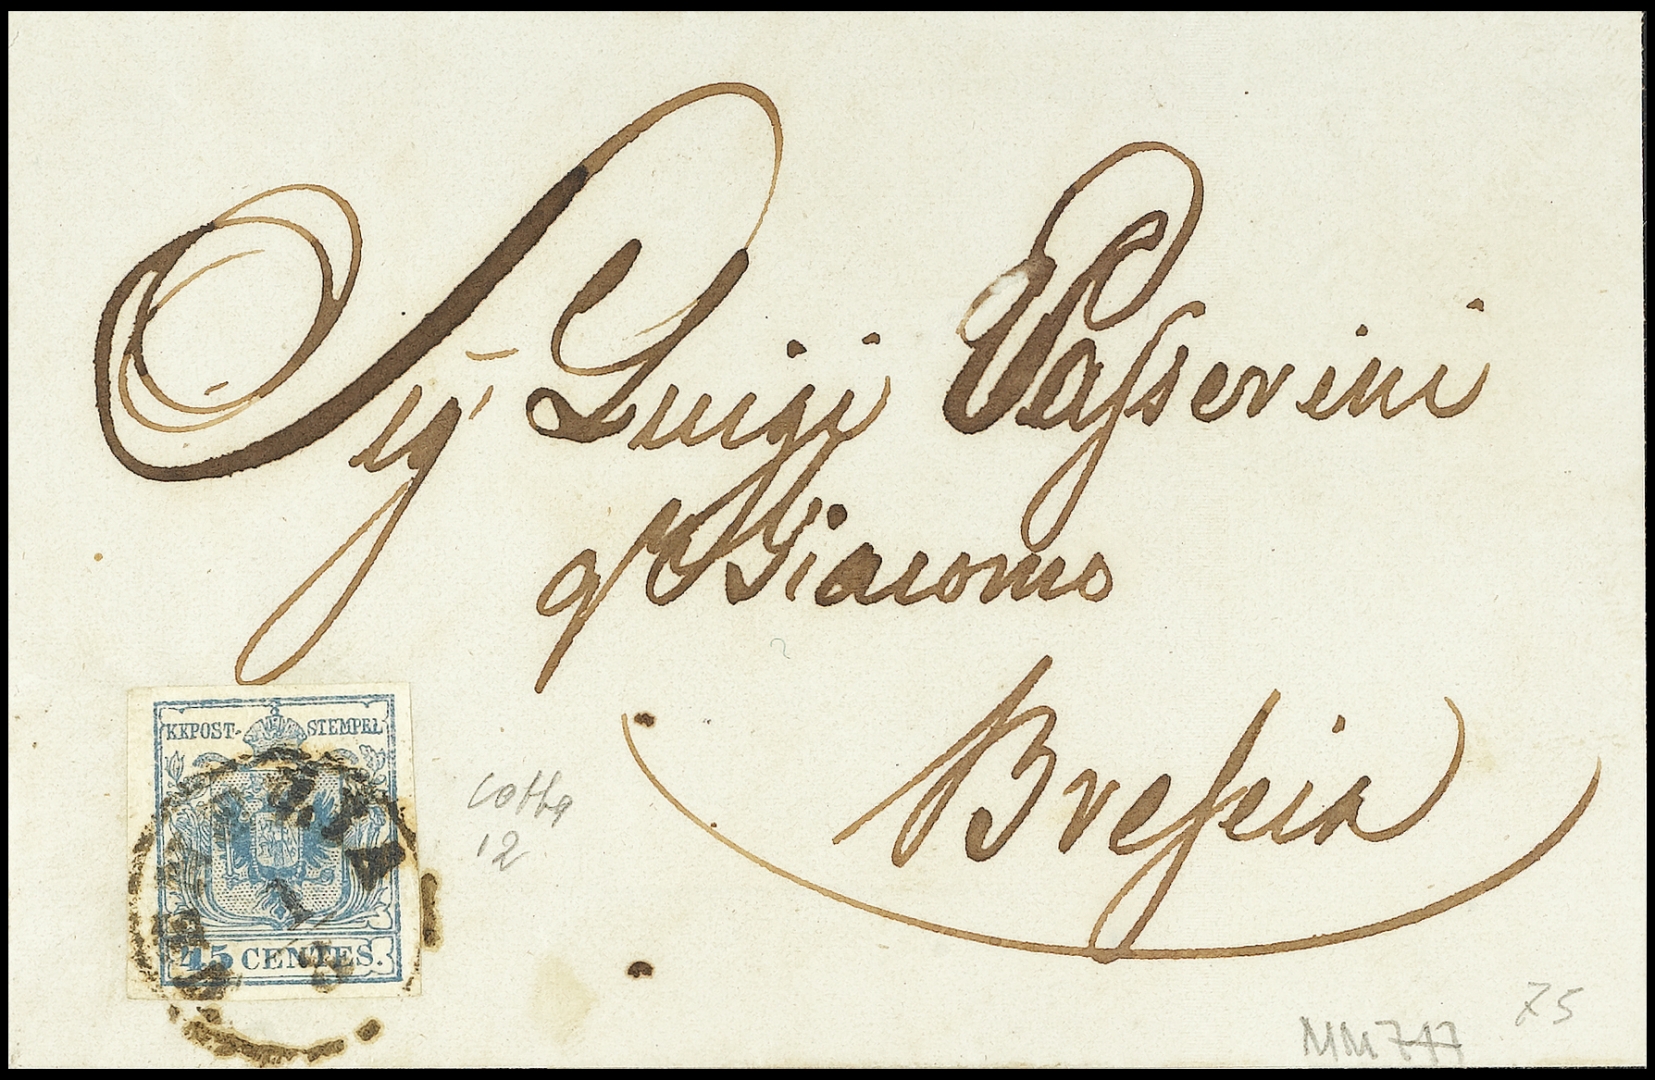 Sigʳ Luigi Passerini
qᵐ Giacomo
Brescia
KKPOST-STEMPEL
45 CENTES.
12
MM 747
75